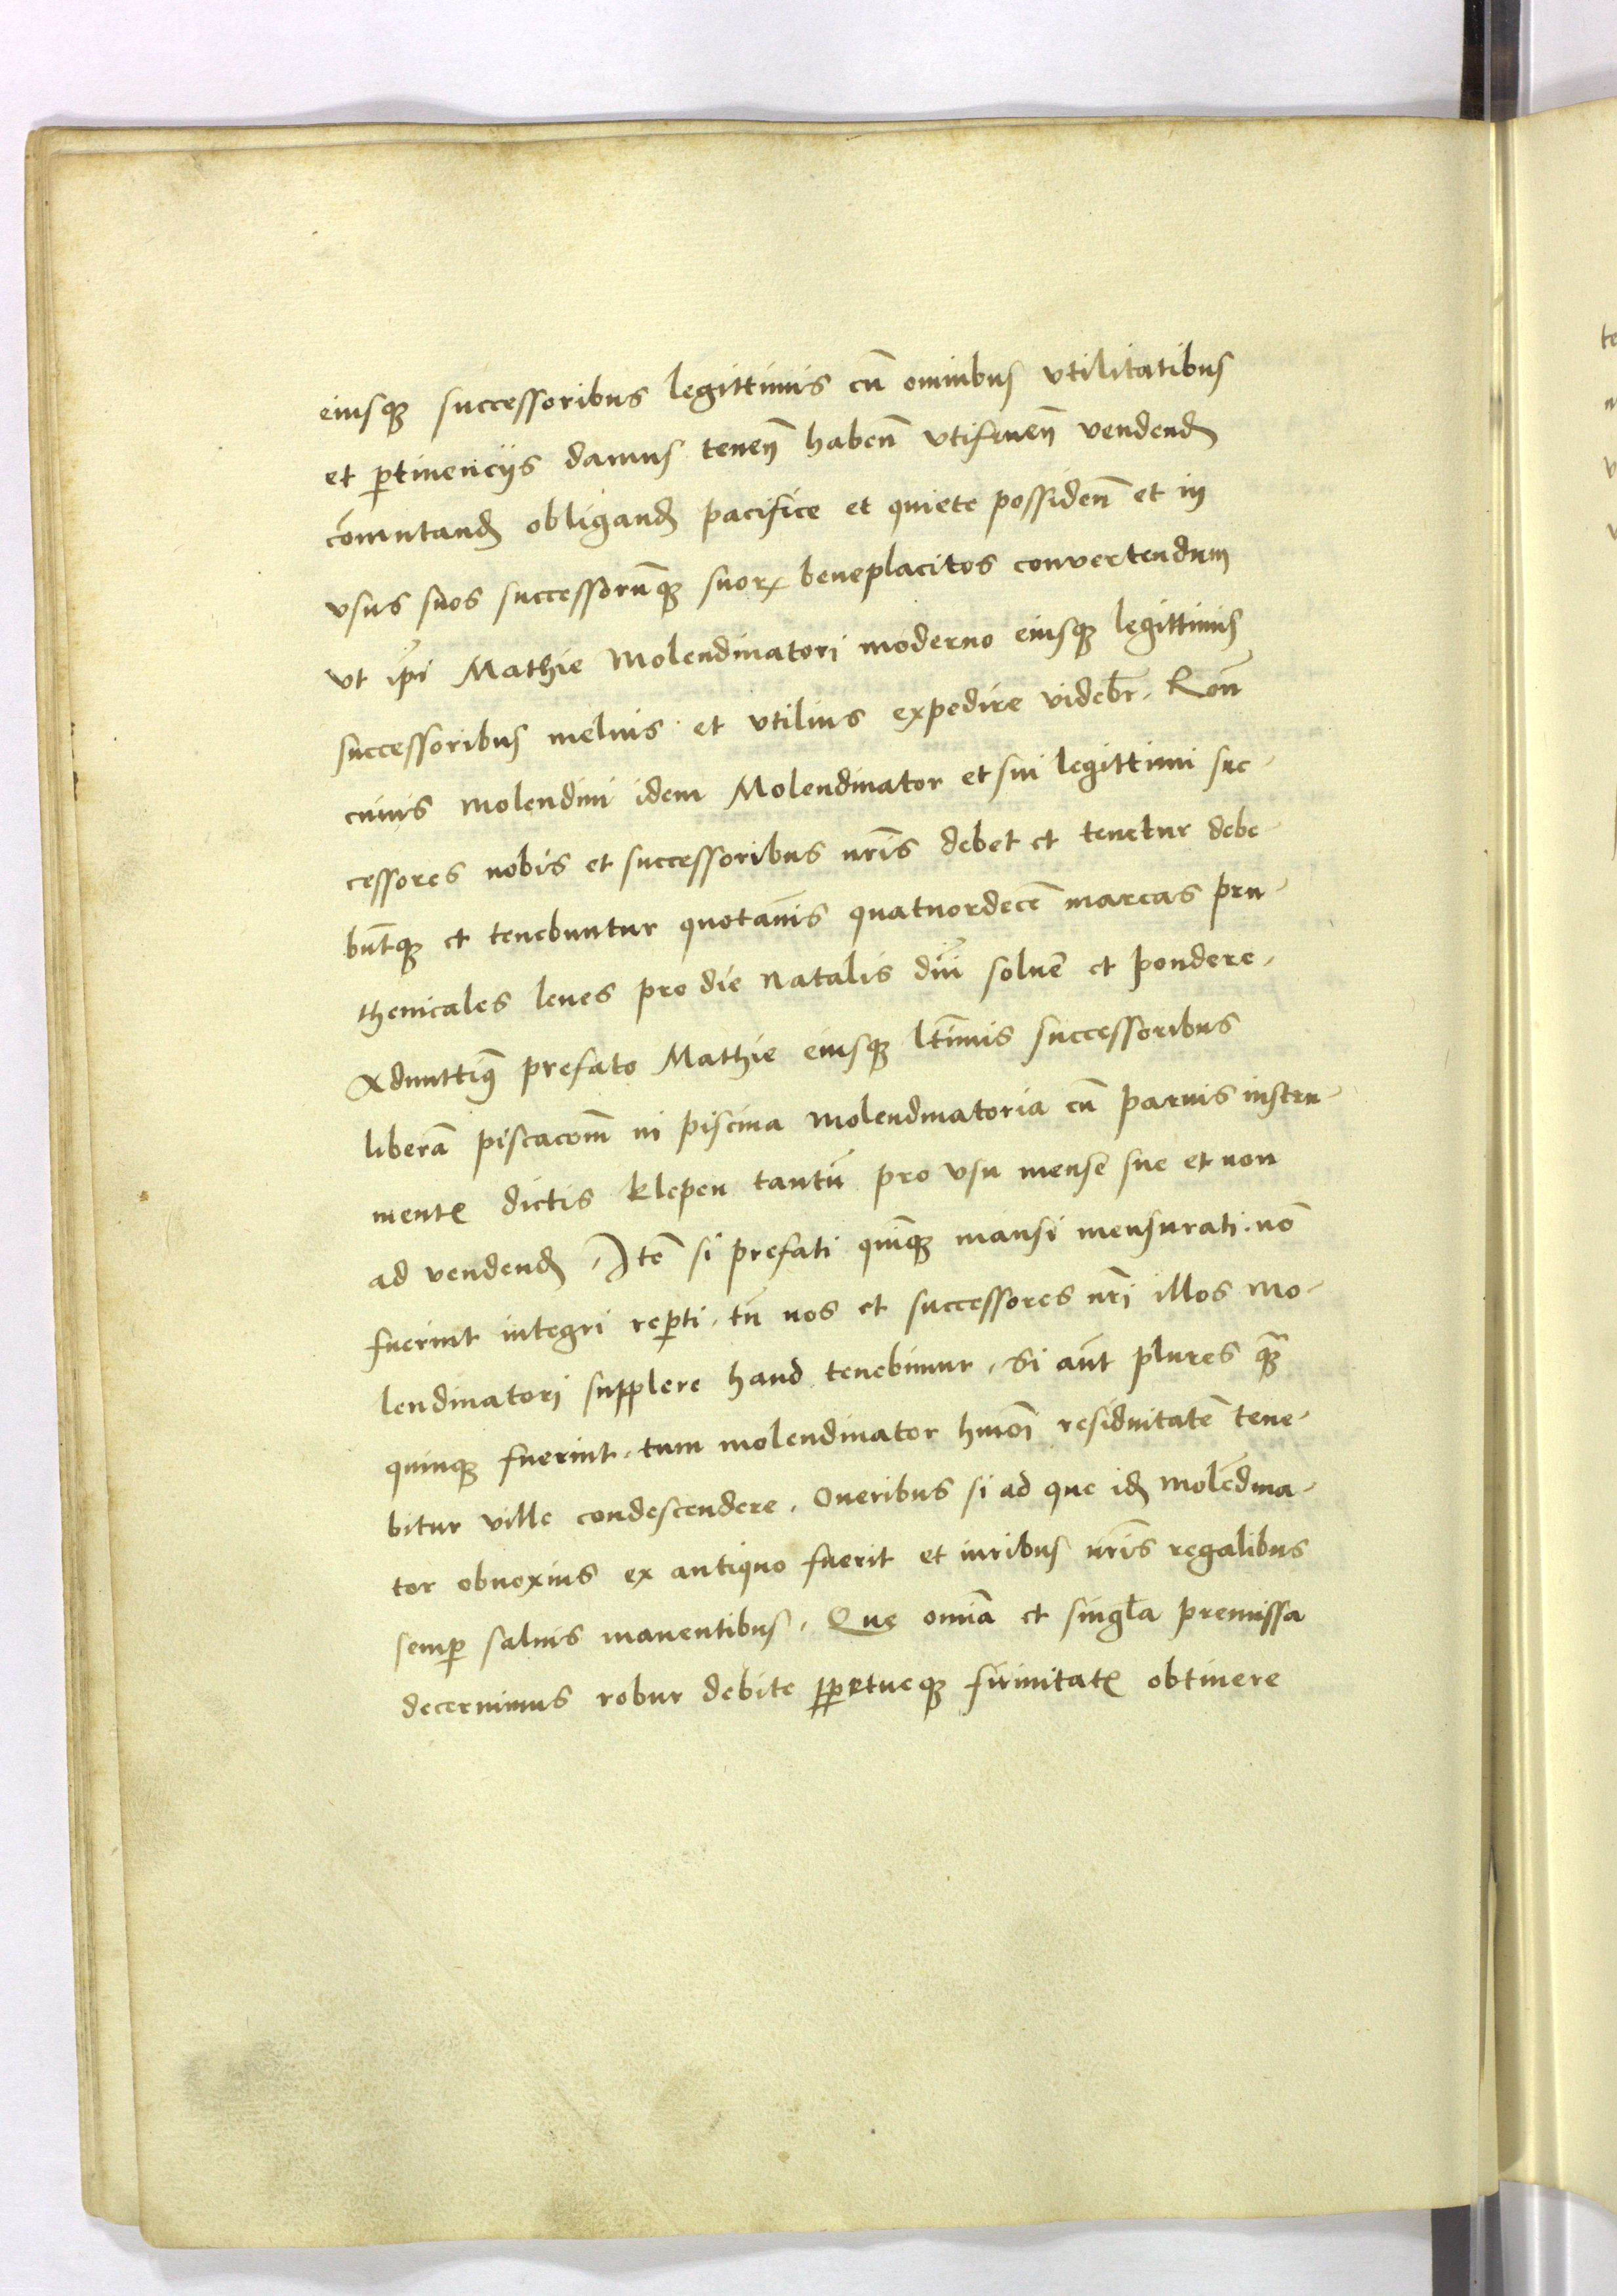 eiusqꝫ successoribus legittimis cū omnibus vtilitatibus
et ꝑtinencijs damus teneñ habeñ vtifrueñ vendend
cōmutand obligand pacifice et quiete possideñ et in
vsus suos successorūqꝫ suorꝝ beneplacitos convertendum
vt ip̄i Mathie Molendinatori moderno eiusqꝫ legittimis
successoribus melius et vtilius expedire videbr̄. Roñ
cuius molendini idem Molendinator et sui legittimi suc-
cessores nobis et successoribus nr̄is debet et tenetur debe-
būtqꝫ et tenebuntur quotānis quatuordecē marcas pru-
thenicales leues pro die Natalis dn̄i soluē et pondere.
Admittimꝰ prefato Mathie eiusqꝫ ltīmis successoribus
liberā piscacom̄ in piscina molendinatoria cū paruis instru-
mentꝭ dictis klepen tantū pro vsu mense sue et non
ad vendend. Itē si prefati quīqꝫ mansi mensurati. nō
fuerint integri reꝑti. tū nos et successores nr̄i illos mo-
lendinatori supplere haud tenebimur. Si aūt plures qꝫ̄
quinqꝫ fuerint. tum molendinator hmōi residuitatē tene-
bitur ville condescendere. Oneribus si ad que id molēdina-
tor obnoxius ex antiquo fuerit et iuribus nr̄is regalibus
semꝑ saluis manentibus. Que om̄ia et singl̄a premissa
decernimus robur debite ꝑpetueqꝫ firmitatꝭ obtinere